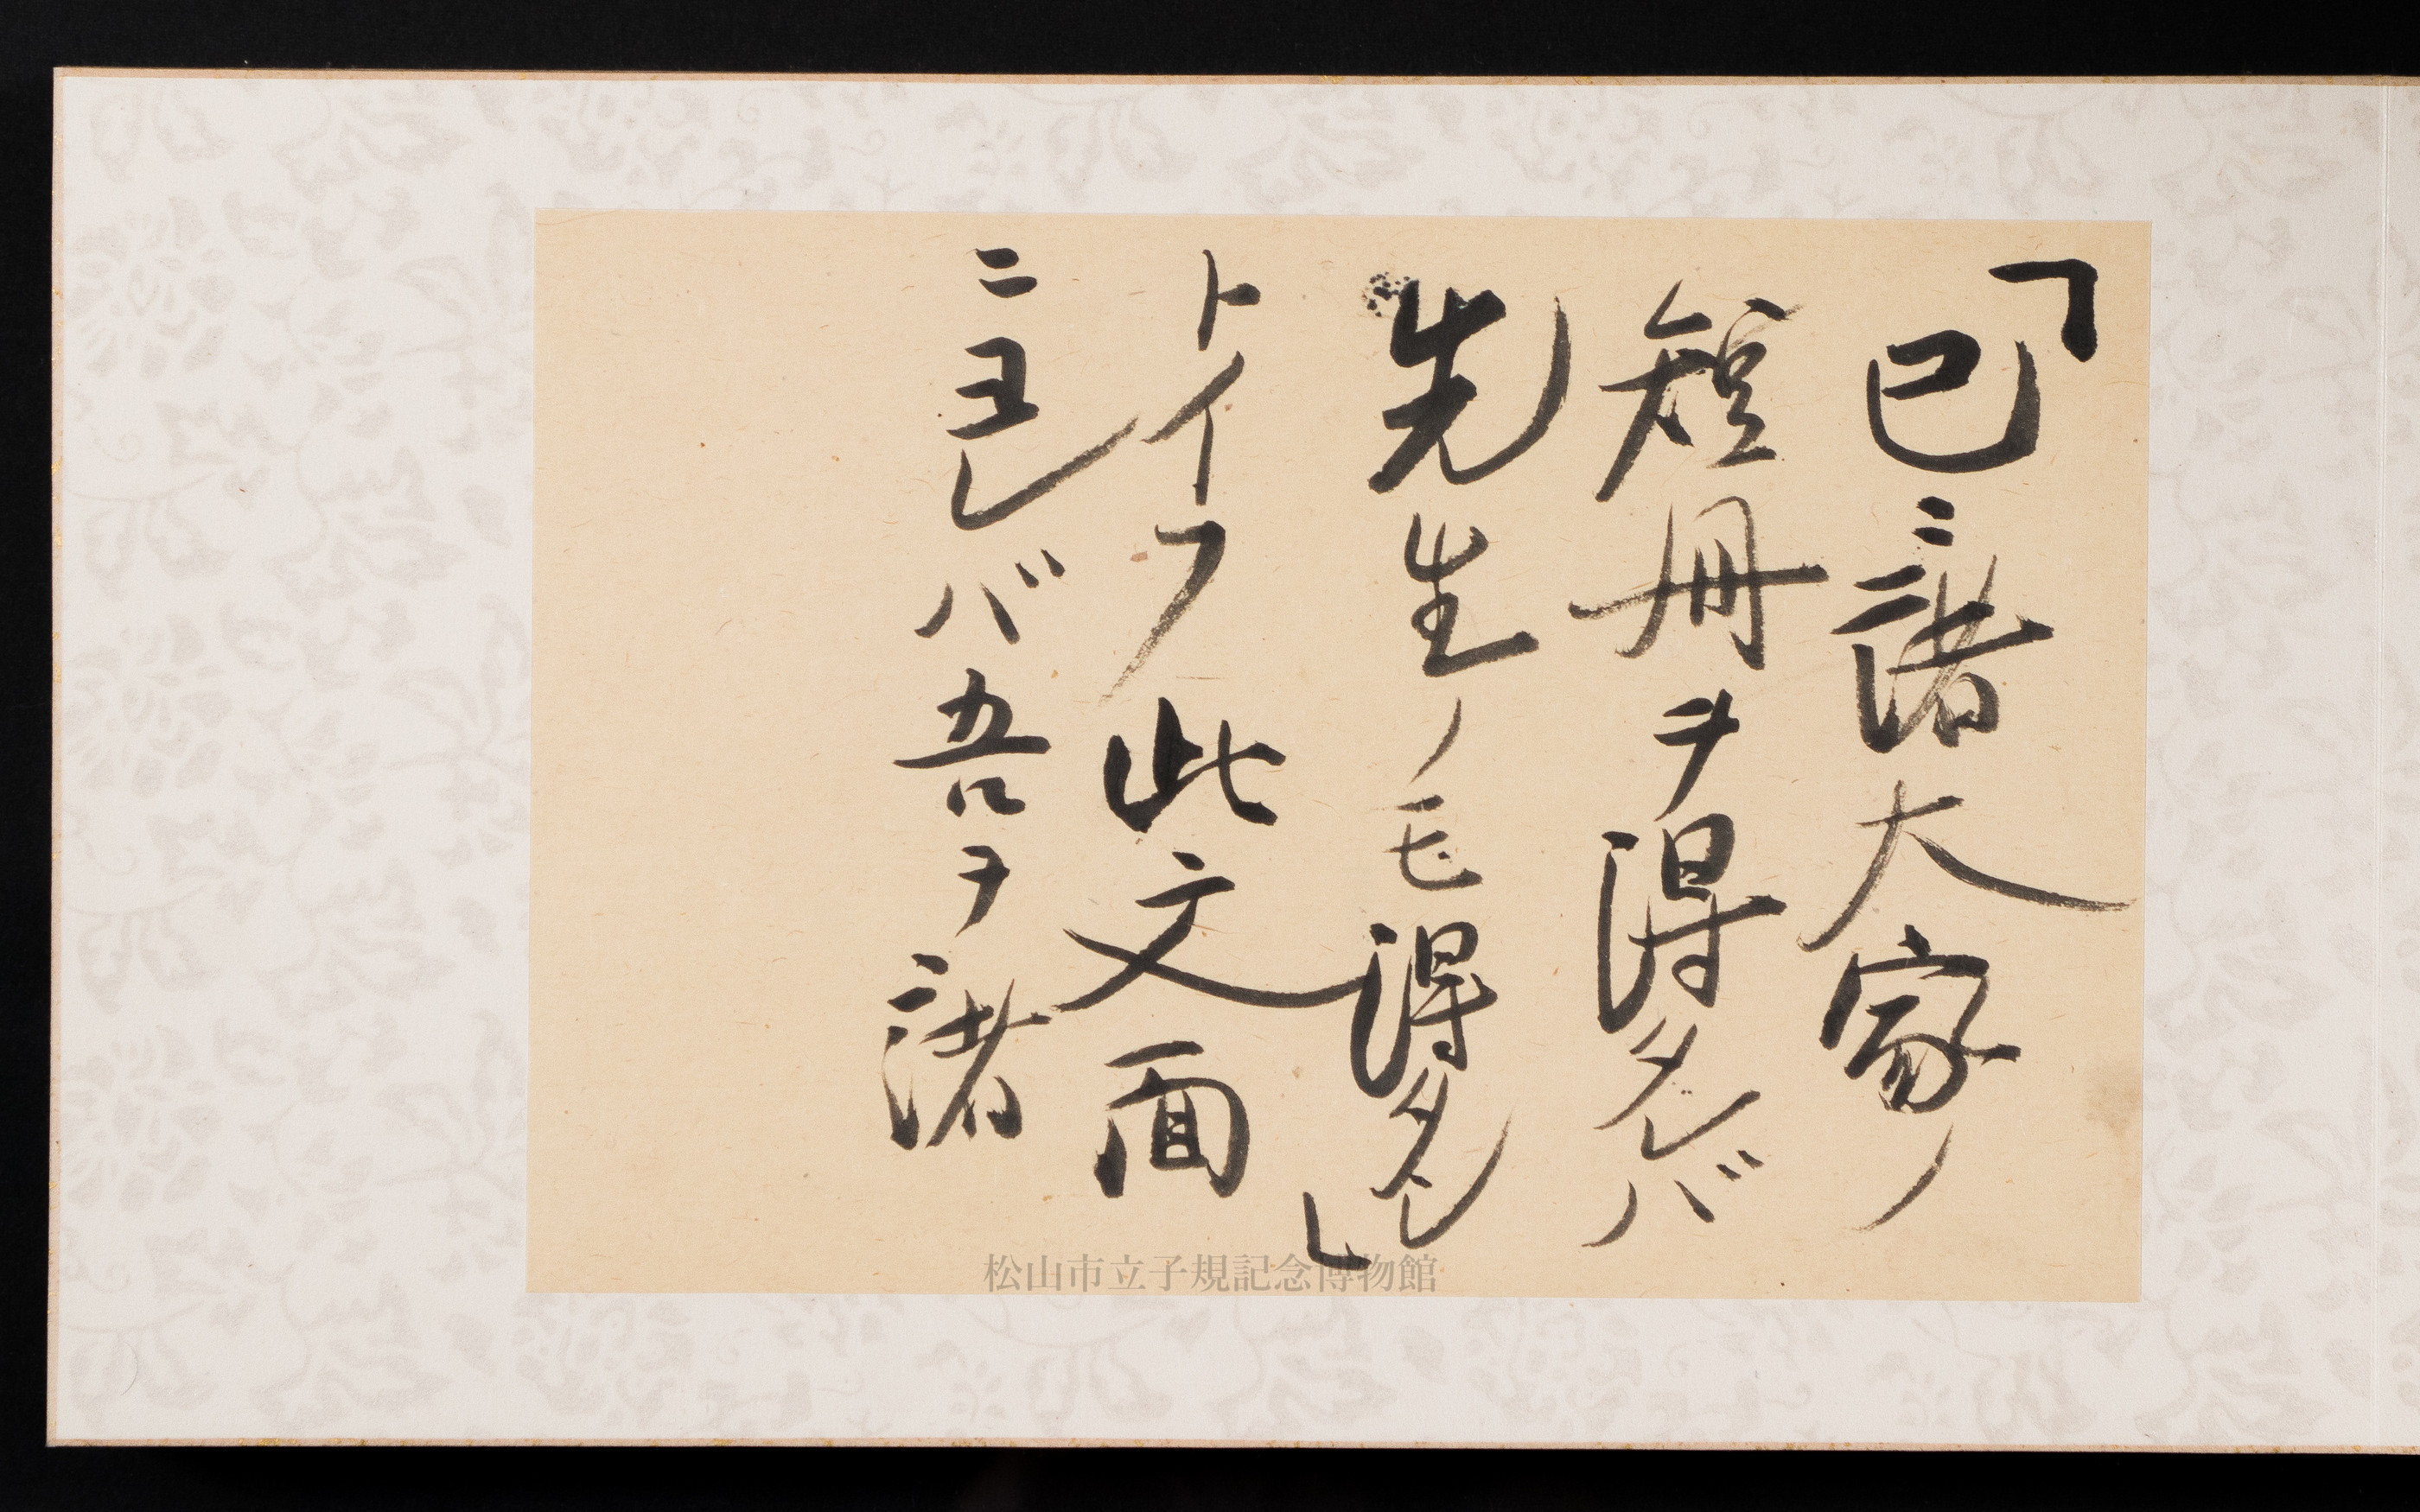 「已ニ諸大家ノ
短冊ヲ得タレバ
先生ノモ得タシ」
トイフ此文面
ニヨレバ吾ヲ諸
松山市立子規記念博物館